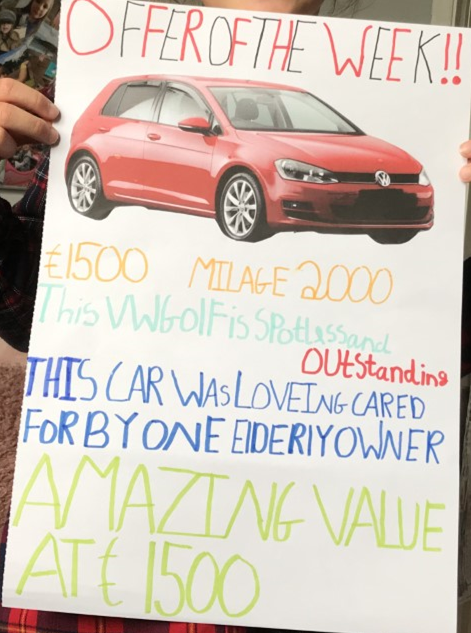 OFFER OF THE WEEK!!
£1500 MILAGE 2000
This VW Golf is SPotless and
OUtStanding
THIS CAR WAS LOVEING CARED
FOR BY ONE ElDERlY OWNER
AMAZING VALUE
AT £1500